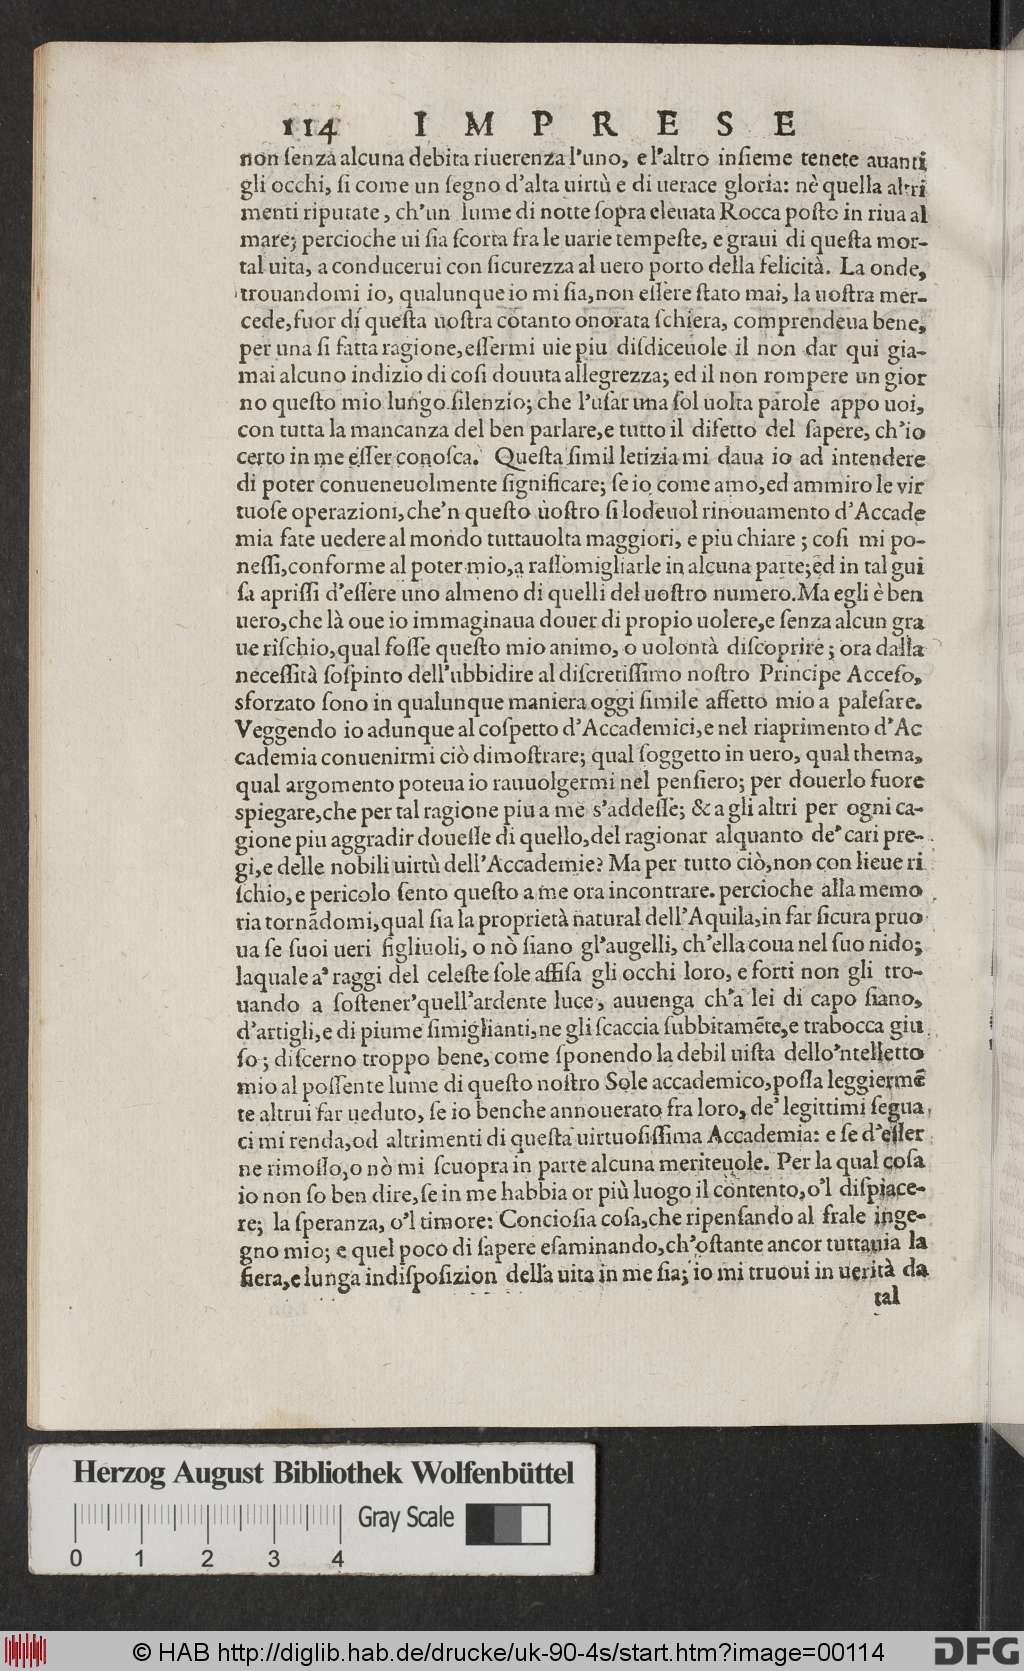 114 IMPRESE
non ſenza alcuna debita riuerenza l'uno, e l'altro inſieme tenete auanti
gli occhi, ſi come un ſegno d'alta uirtù e di uerace gloria: nè quella altri
menti riputate, ch'un lume di notte ſopra eleuata Rocca poſto in riua al
mare; percioche ui ſia ſcorta fra le uarie tempeſte, e graui di queſta mor-
tal uita, a conducerui con ſicurezza al uero porto della felicità. La onde,
trouandomi io, qualunque io mi ſia, non eſſere ſtato mai, la uoſtra mer-
cede, fuor di queſta uoſtra cotanto onorata ſchiera, comprendeua bene,
per una ſi fatta ragione, eſſermi uie piu diſdiceuole il non dar qui gia-
mai alcuno indizio di coſi douuta allegrezza; ed il non rompere un gior
no queſto mio lungo ſilenzio; che l'uſar una ſol uolta parole appo uoi,
con tutta la mancanza del ben parlare, e tutto il difetto del ſapere, ch'io
certo in me eſſer conoſca. Queſta ſimil letizia mi daua io ad intendere
di poter conueneuolmente ſignificare; ſe io come amo, ed ammiro le vir
tuoſe operazioni, che'n queſto uoſtro ſi lodeuol rinouamento d'Accade
mia fate uedere al mondo tuttauolta maggiori, e piu chiare; coſi mi po-
neſſi, conforme al poter mio, a raſſomigliarle in alcuna parte; ed in tal gui
ſa apriſſi d'eſſere uno almeno di quelli del uoſtro numero. Ma egli è ben
uero, che là oue io immaginaua douer di propio uolere, e ſenza alcun gra
ue riſchio, qual foſſe queſto mio animo, o uolontà diſcoprire; ora dalla
neceſſità ſoſpinto dell'ubbidire al diſcretiſſimo noſtro Principe Acceſo,
sforzato ſono in qualunque maniera oggi ſimile affetto mio a paleſare.
Veggendo io adunque al coſpetto d'Accademici, e nel riaprimento d'Ac
cademia conuenirmi ciò dimoſtrare; qual ſoggetto in uero, qual thema,
qual argomento poteua io rauuolgermi nel penſiero; per douerlo fuore
spiegare, che per tal ragione piu a me s'addeſſe; & a gli altri per ogni ca-
gione piu aggradir doueſſe di quello, del ragionar alquanto de' cari pre-
gi, e delle nobili uirtù dell'Accademie? Ma per tutto ciò, non con lieue ri
ſchio, e pericolo ſento queſto a me ora incontrare. percioche alla memo
ria tornãdomi, qual ſia la proprietà natural dell'Aquila, in far ſicura pruo
ua ſe ſuoi ueri figliuoli, o nò ſiano gl'augelli, ch'ella coua nel ſuo nido;
laquale a' raggi del celeſte ſole affiſa gli occhi loro, e forti non gli tro-
uando a ſoſtener' quell'ardente luce, auuenga ch'a lei di capo ſiano,
d'artigli, e di piume ſimiglianti, ne gli ſcaccia ſubbitamẽte, e trabocca giu
ſo; diſcerno troppo bene, come ſponendo la debil uiſta dello'ntelletto
mio al poſſente lume di queſto noſtro Sole accademico, poſſa leggiermẽ
te altrui far ueduto, ſe io benche annouerato fra loro, de' legittimi ſegua
ci mi renda, od altrimenti di queſta uirtuoſiſſima Accademia: e ſe d'eſſer
ne rimoſſo, o nò mi ſcuopra in parte alcuna meriteuole. Per la qual coſa
io non ſo ben dire, ſe in me habbia or più luogo il contento, o'l diſpiace-
re; la ſperanza, o'l timore: Concioſia coſa, che ripenſando al frale inge-
gno mio; e quel poco di ſapere eſaminando, ch'oſtante ancor tuttauia la
fiera, e lunga indiſpoſizion della uita in me ſia; io mi truoui in uerità da
tal
Herzog August Bibliothek Wolfenbüttel
Gray Scale
0 1 2 3 4
© HAB http://diglib.hab.de/drucke/uk-90-4s/start.htm?image=00114
DFG